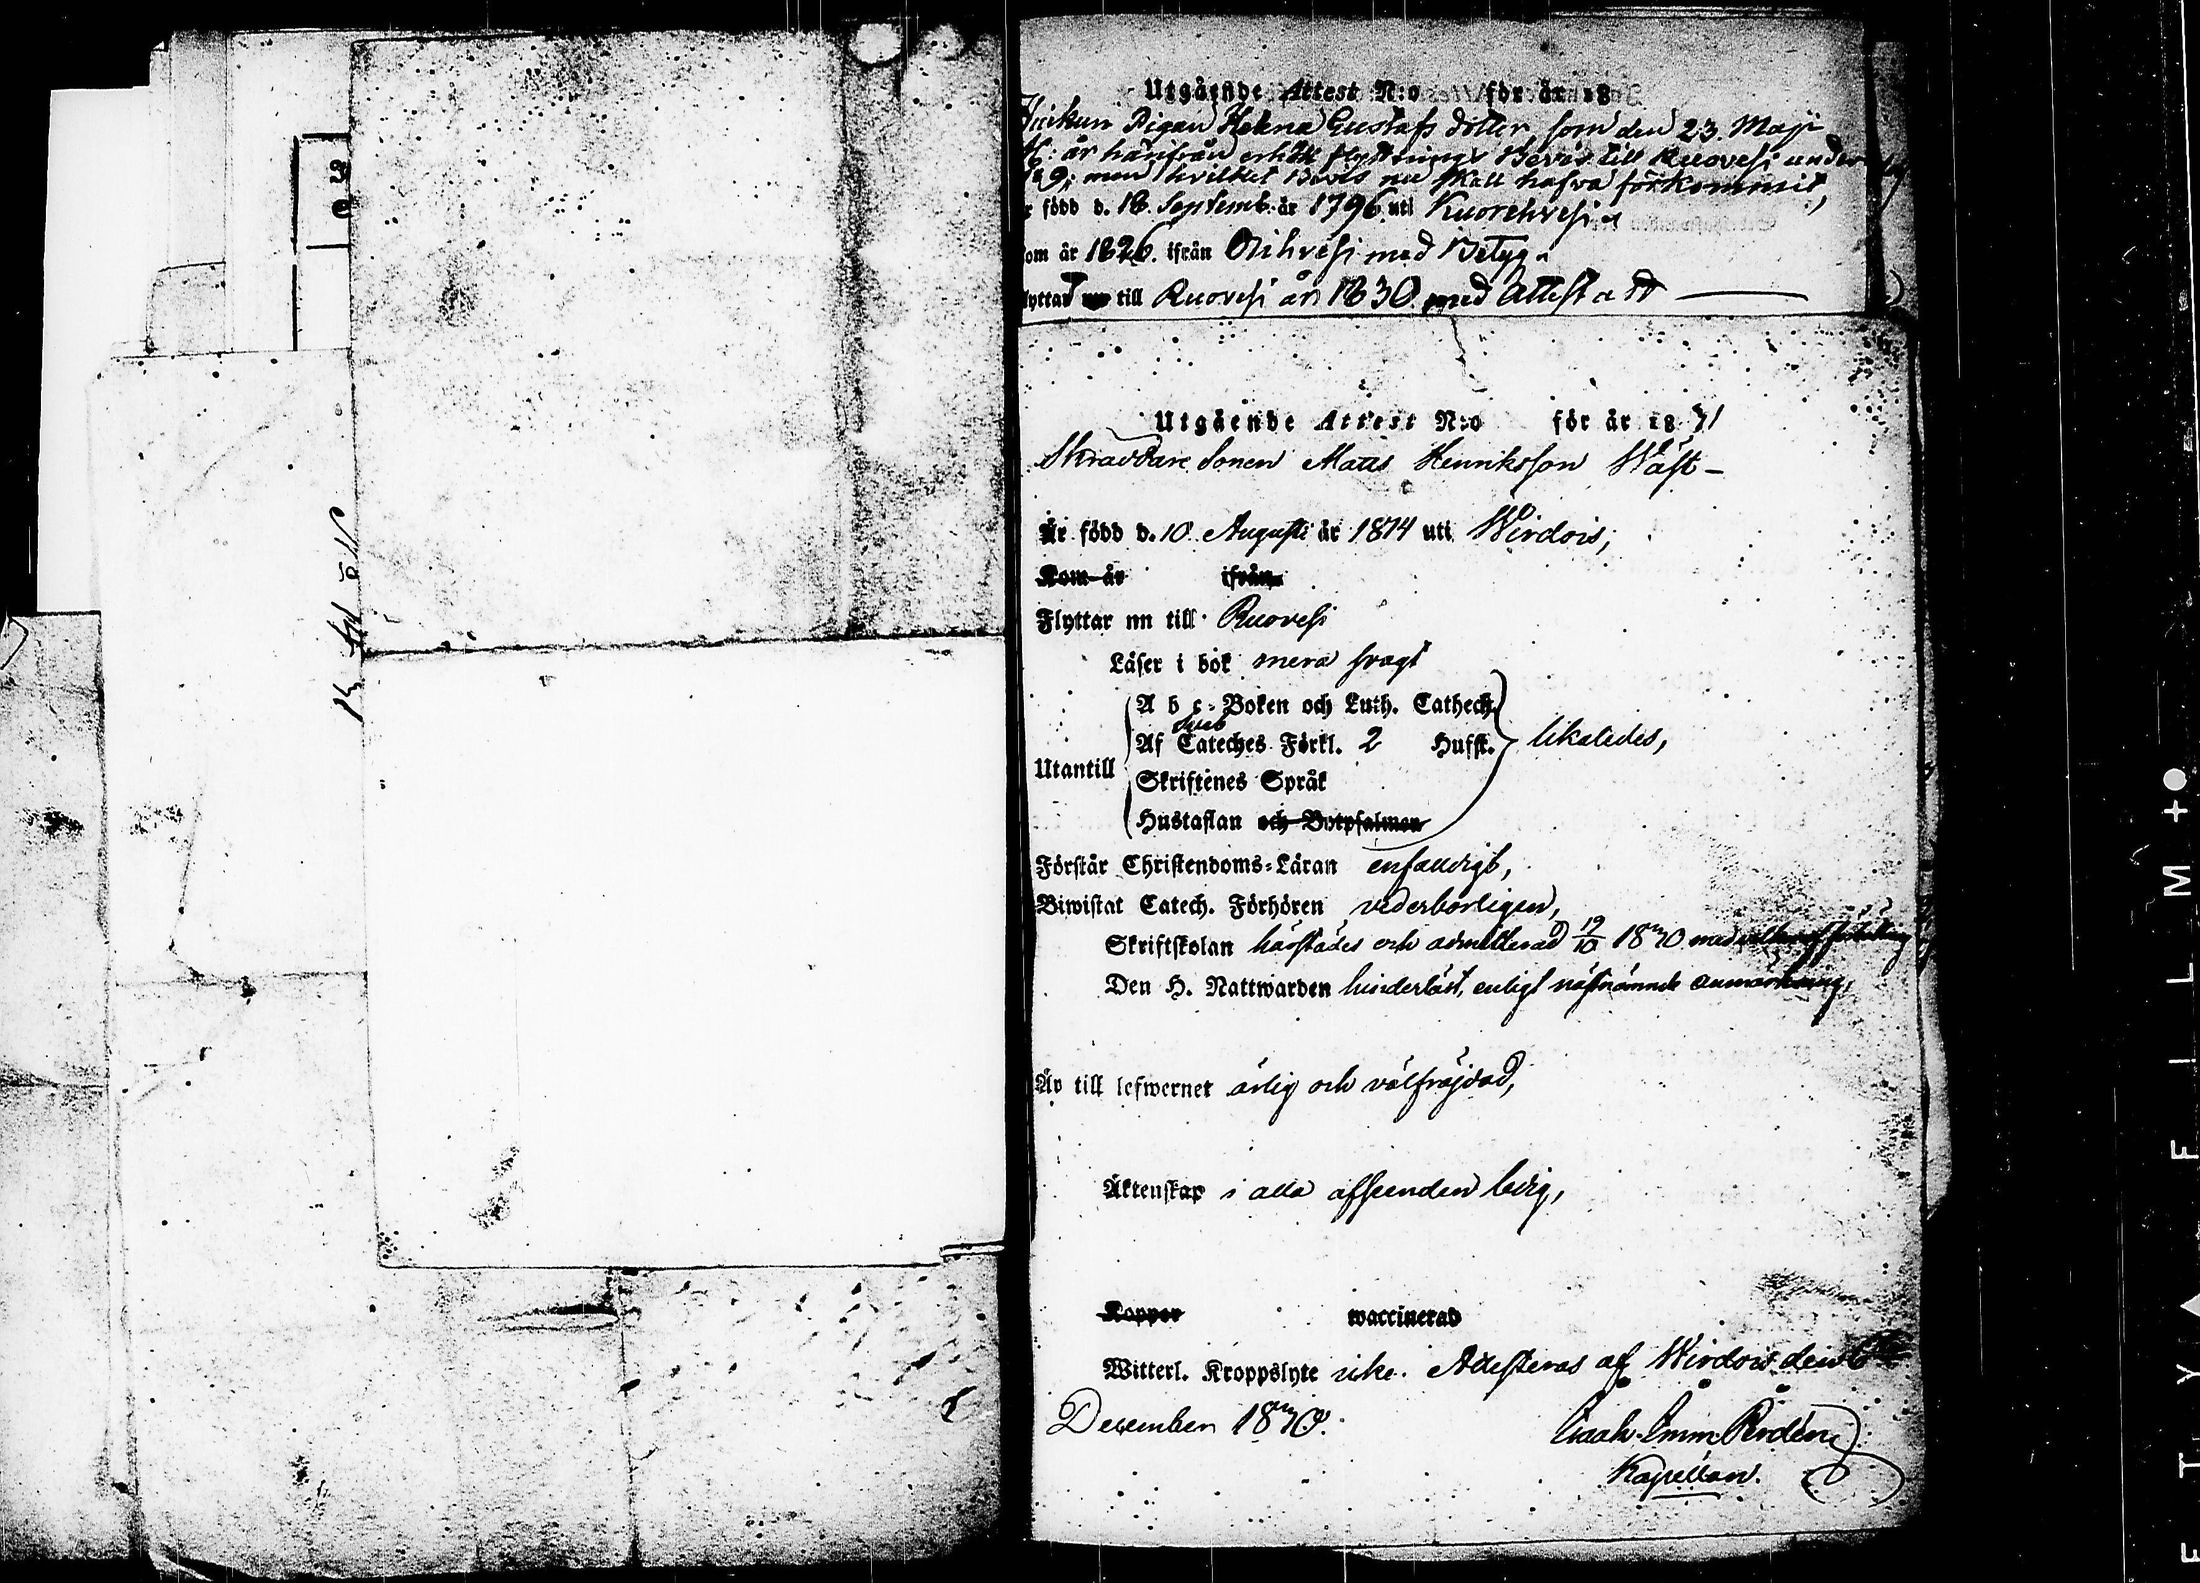 Utgående Attest N:o för år 18
Pigan Helena Gustafs dotter, som den 23. Maji
är härifrån erhållit flyttnings Bevis till Ruovesi under
N:o 9; men hvilket Bevis nu skall hafva förkommit,
född d. 18. Septemb. år 1796. uti Kuorehvesi
om år 1826. ifrån med Betyg
lyttat till Ruovesi år 1830. med Attest a
Utgående Attest N:o för år 1831
Skraddare Sonen Matts Henriksson Wäst-
Är född d. 10 Augusti år 1814 uti Wirdois;
Kom år ifrån
Flyttar nu till Ruovesi
Läser i bok mera svagt
A b c-Boken och Luth. Cathech.
Af Cateches Förkl. 2 Husst. likaledes,
Utantill
Skriftenes Språk
Hustaflan och Botpsalmen
Förstår Christendoms-Läran enfaldigt,
Biwistat Catech. Förhören vederbörligen,
Skriftskolan härstädes och admitterad 19/10 1830 med
Den H. Nattwarden hinderlöst, enligt nästnämnde anmärkning,
Är till lefwernet ärlig och välfräjdad,
Äktenskap i alla afseenden ledig,
Koppor waccinerad
Witterl. Kroppslyte icke. Attesteras af Wirdois den
December 1830.
Isaak Imm. Rodén
Kapellan.
FILM